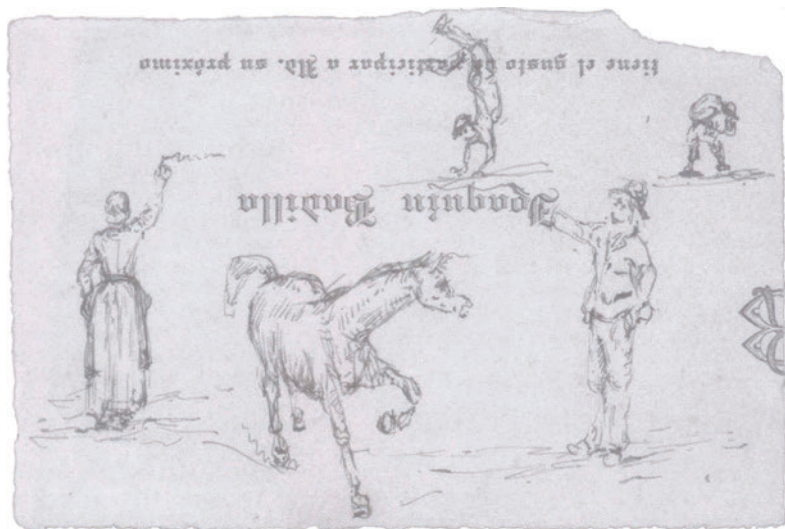 Joaquín Badillo
tiene el gusto de participar a Vd. su próximo